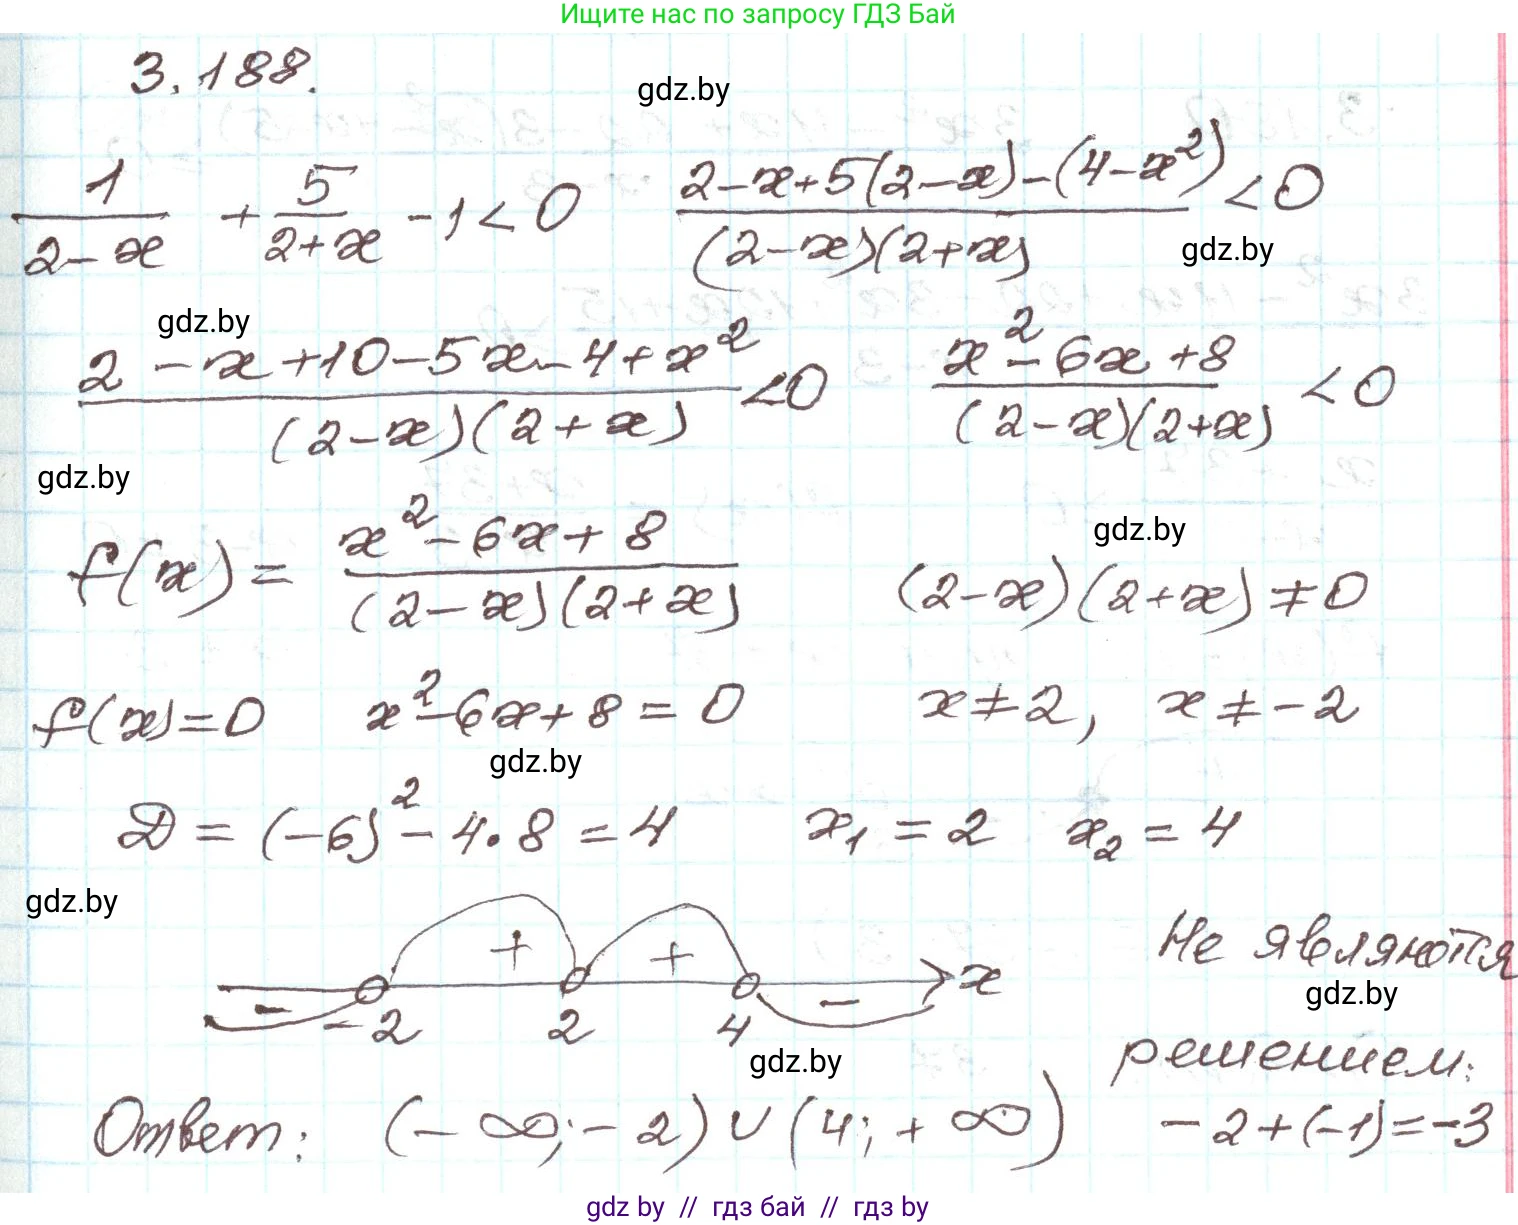 Ищите нас по запросу ГДЗ Бай
3.188.
gdz.by
1/(2-x) + 5/(2+x) - 1 < 0    (2-x+5(2-x)-(4-x²))/((2-x)(2+x)) < 0
gdz.by
gdz.by
(2-x+10-5x-4+x²)/((2-x)(2+x)) < 0    (x²-6x+8)/((2-x)(2+x)) < 0
gdz.by
gdz.by
f(x) = (x²-6x+8)/((2-x)(2+x))    (2-x)(2+x) ≠ 0
f(x)=0    x²-6x+8=0    x≠2, x≠-2
gdz.by
D = (-6)²-4·8=4    x₁=2    x₂=4
gdz.by
- + + - x
-2 2 4
Не являются
gdz.by
решением:
gdz.by
Ответ: (-∞;-2)∪(4;+∞)    -2+(-1)=-3
gdz by // гдз бай // гдз by